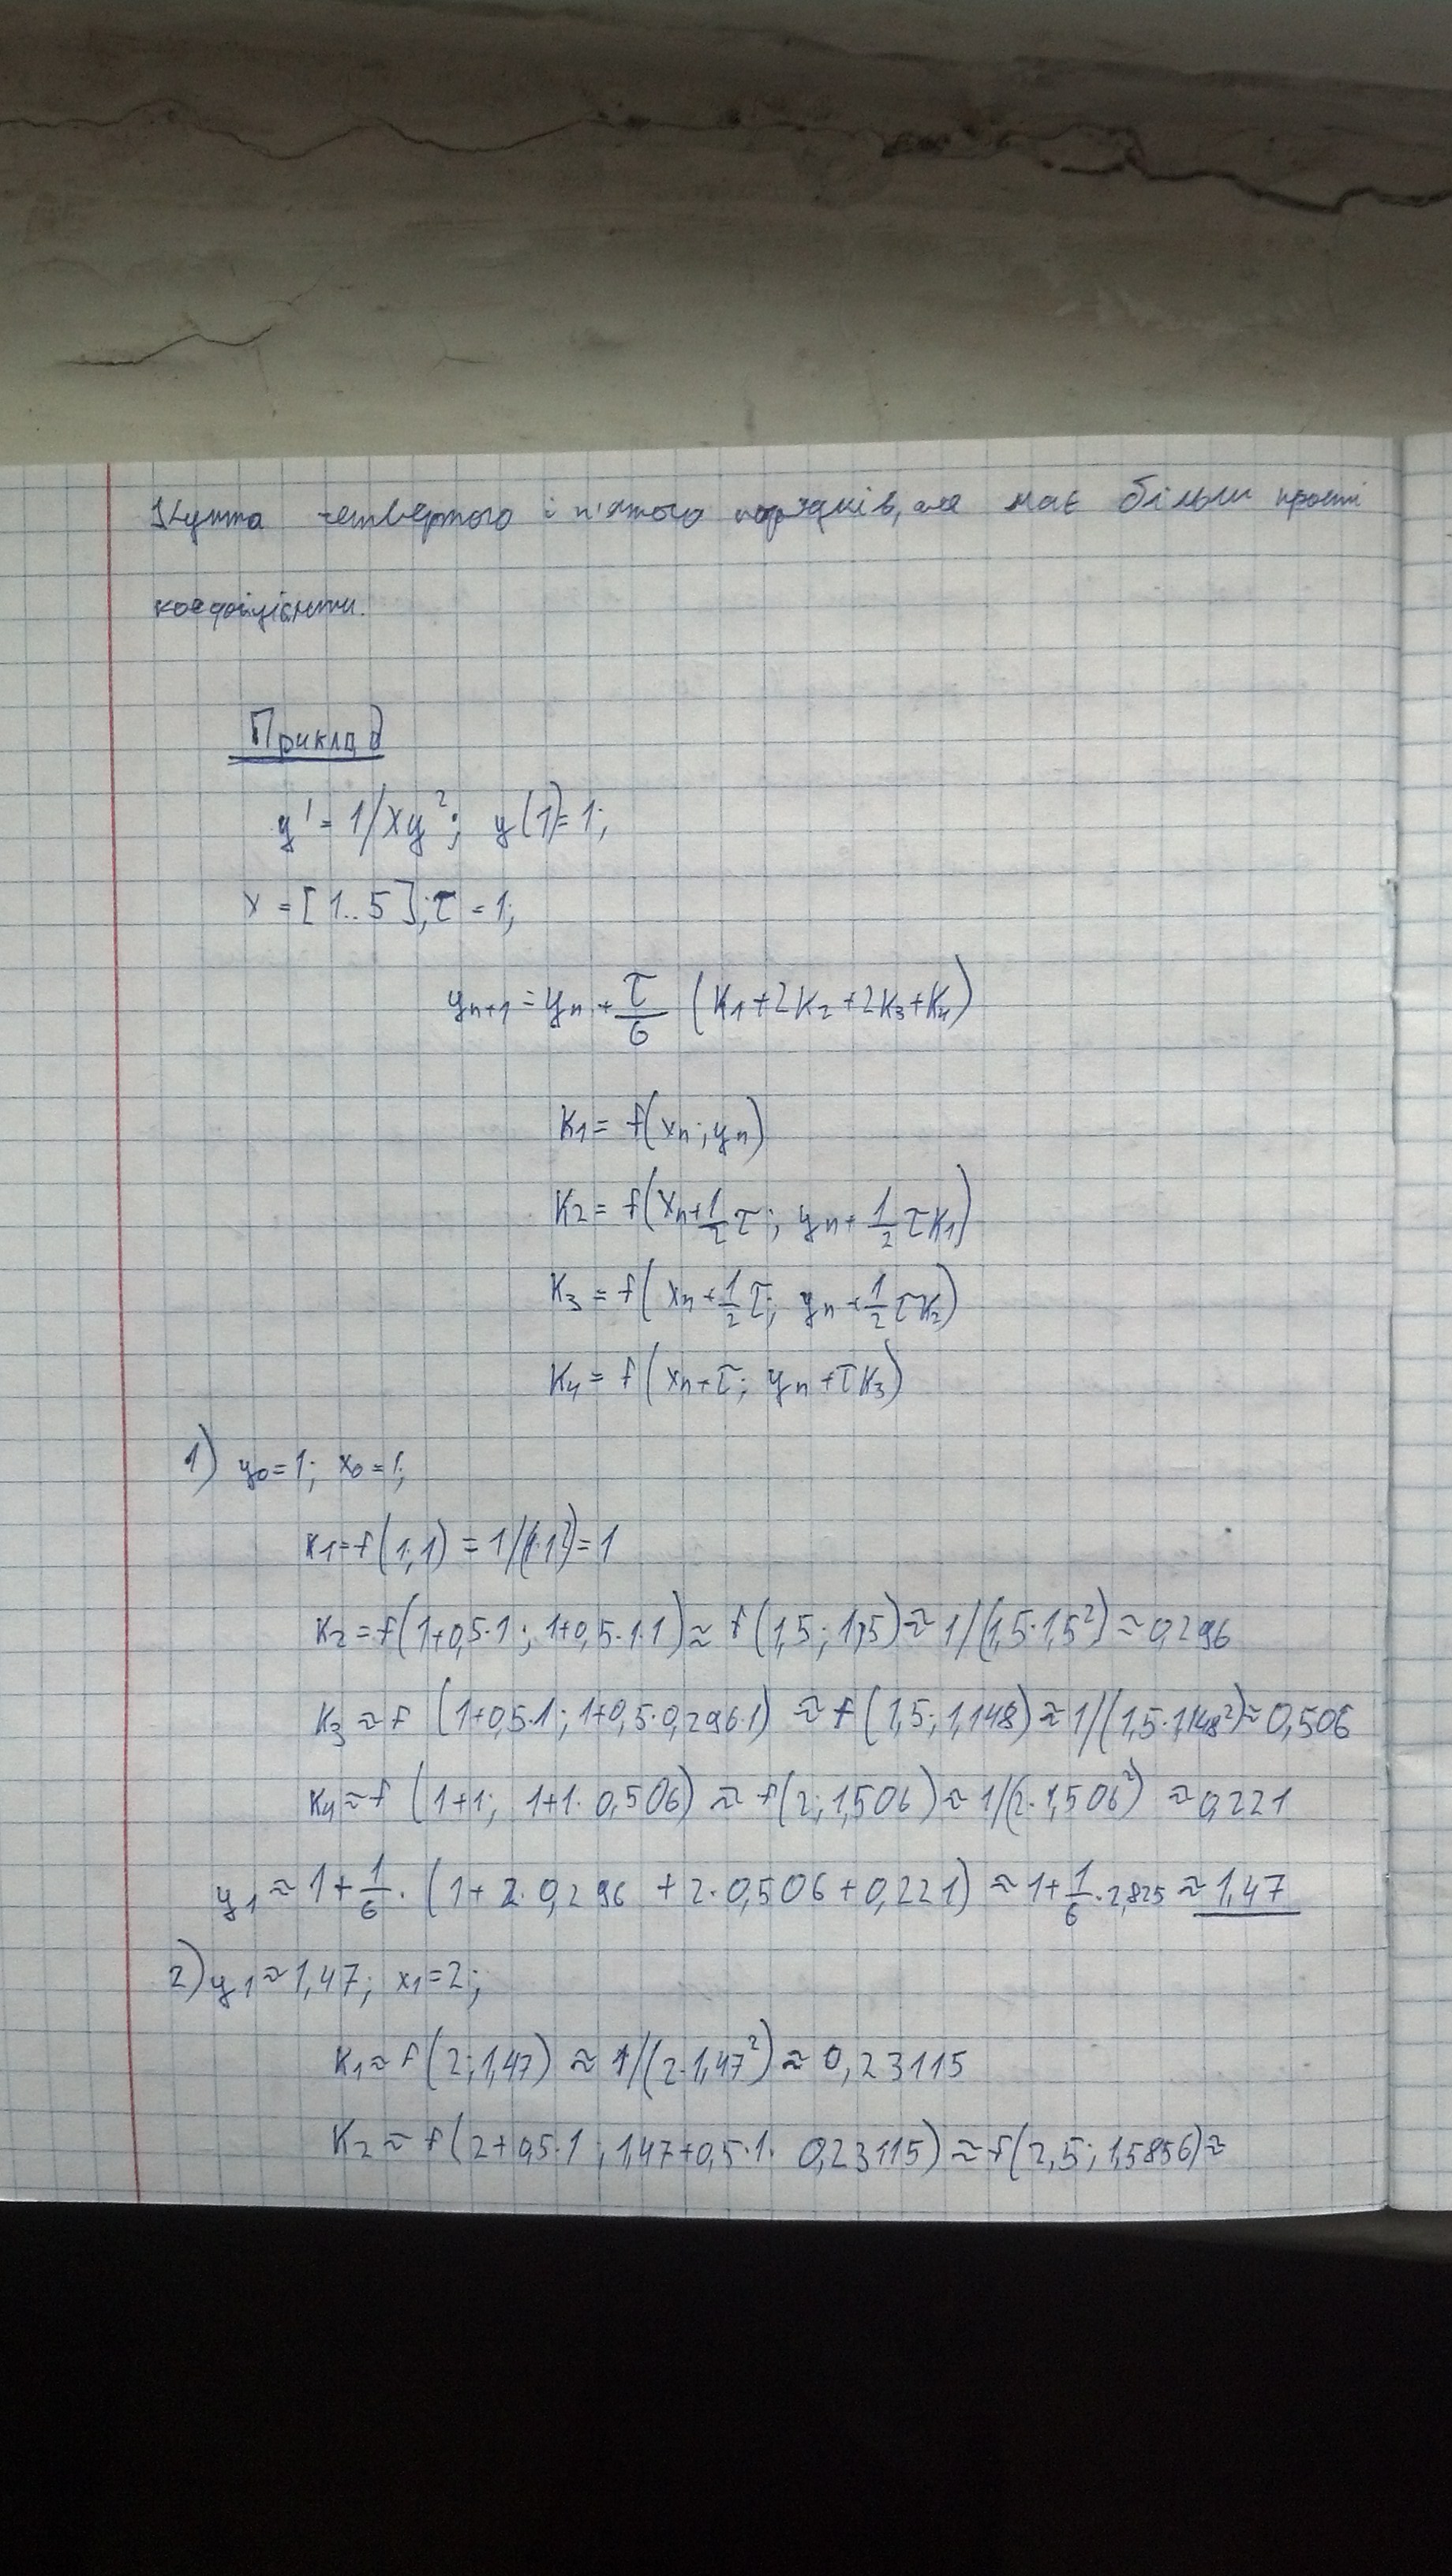 Кутта четвертого і п'ятого порядків, але має більш прості
коефіцієнти.
Приклад
y' = 1/xy²; y(1)=1;
x = [1..5]; τ = 1;
yₙ₊₁ = yₙ + τ/6 (K₁+2K₂+2K₃+K₄)
K₁ = f(xₙ; yₙ)
K₂ = f(xₙ+1/2 τ; yₙ+1/2 τK₁)
K₃ = f(xₙ+1/2 τ; yₙ+1/2 τK₂)
K₄ = f(xₙ+τ; yₙ+τK₃)
1) y₀=1; x₀=1;
K₁=f(1;1) = 1/(1·1²)=1
K₂=f(1+0,5·1; 1+0,5·1·1)≈ f(1,5; 1,5)≈1/(1,5·1,5²)≈0,296
K₃≈f (1+0,5·1; 1+0,5·0,296·1) ≈ f(1,5; 1,148)≈1/(1,5·1,148²)≈0,506
K₄≈f (1+1; 1+1·0,506) ≈ f(2; 1,506)≈1/(2·1,506²) ≈0,221
y₁≈1+1/6·(1+2·0,296+2·0,506+0,221)≈1+1/6·2,825≈1,47
2) y₁≈1,47; x₁=2;
K₁≈f(2;1,47)≈1/(2·1,47²)≈0,23115
K₂≈f(2+0,5·1; 1,47+0,5·1·0,23115)≈f(2,5; 1,5856)≈